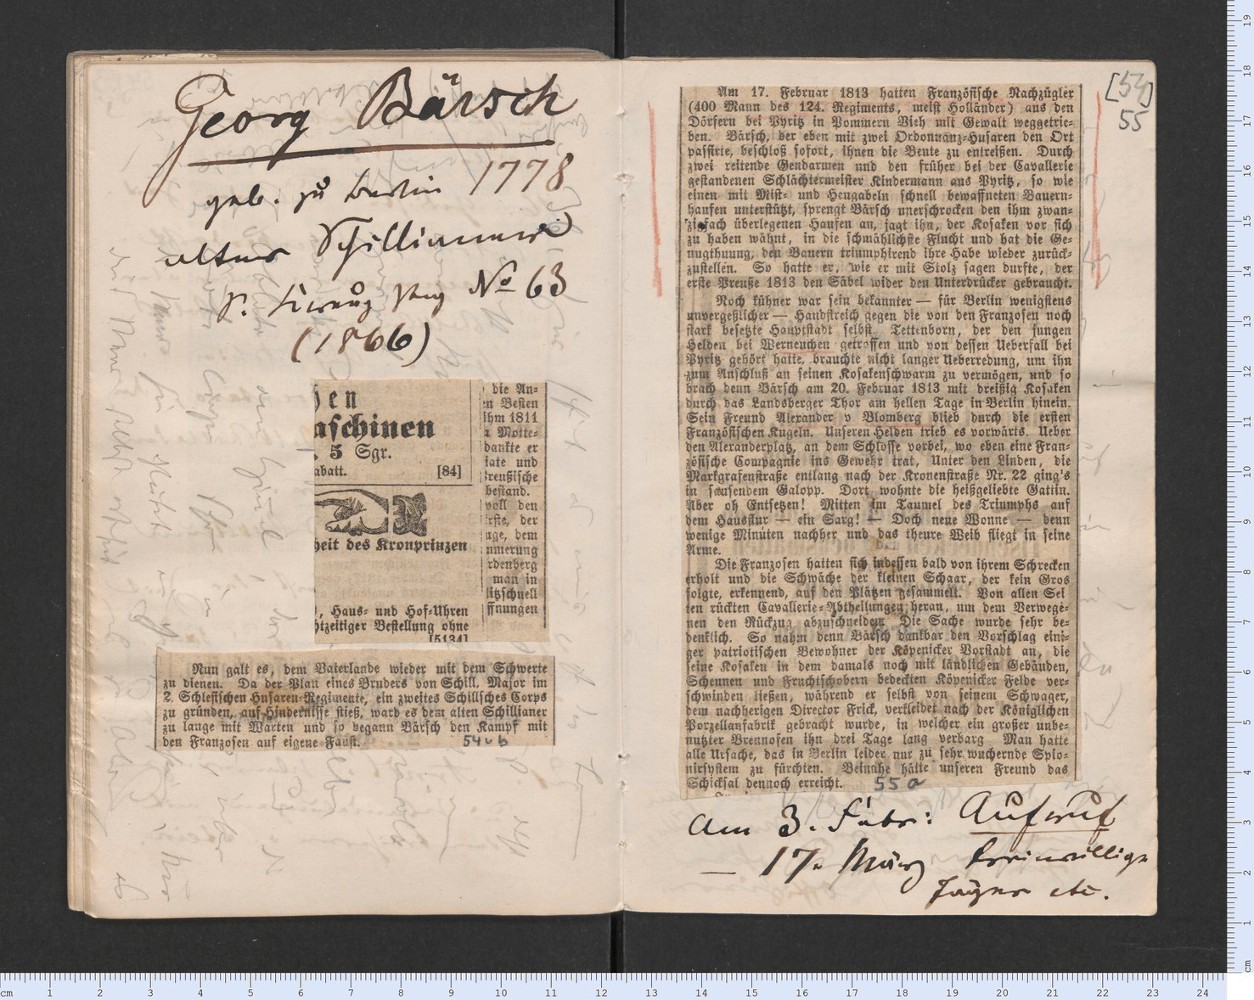 Georg Bärsch
geb. zu Berlin 1778
alter Schillianer
s. Kreuz Ztg No 63
(1866)
hen
aschinen
5 Sgr.
abatt. [84]
heit des Kronprinzen
, Haus- und Hof-Uhren
htzeitiger Bestellung ohne
[5134]
die An-
n Besten
ihm 1811
Motte-
dankte er
iate und
reußische
bestand.
voll den
rste, der
age, dem
nmerung
rdenberg
man in
litzschnell
ffnungen
Nun galt es, dem Vaterlande wieder mit dem Schwerte
zu dienen. Da der Plan eines Bruders von Schill, Major im
2. Schlesischen Husaren-Regimente, ein zweites Schillsches Corps
zu gründen, auf Hindernisse stieß, ward es dem alten Schillianer
zu lange mit Warten und so begann Bärsch den Kampf mit
den Franzosen auf eigene Faust.
54 u b
[54]
55
Am 17. Februar 1813 hatten Französische Nachzügler
(400 Mann des 124. Regiments, meist Holländer) aus den
Dörfern bei Pyritz in Pommern Vieh mit Gewalt weggetrie-
ben. Bärsch, der eben mit zwei Ordonnanz-Husaren den Ort
passirte, beschloß sofort, ihnen die Beute zu entreißen. Durch
zwei reitende Gendarmen und den früher bei der Cavallerie
gestandenen Schlächtermeister Kindermann aus Pyritz, so wie
einen mit Mist- und Heugabeln schnell bewaffneten Bauern-
haufen unterstützt, sprengt Bärsch unerschrocken den ihm zwan-
zigfach überlegenen Haufen an, jagt ihn, der Kosaken vor sich
zu haben wähnt, in die schmählichste Flucht und hat die Ge-
nugthuung, den Bauern triumphirend ihre Habe wieder zurück-
zustellen. So hatte er, wie er mit Stolz sagen durfte, der
erste Preuße 1813 den Säbel wider den Unterdrücker gebraucht.
Noch kühner war sein bekannter — für Berlin wenigstens
unvergeßlicher — Handstreich gegen die von den Franzosen noch
stark besetzte Hauptstadt selbst. Tettenborn, der den jungen
Helden bei Werneuchen getroffen und von dessen Ueberfall bei
Pyritz gehört hatte, brauchte nicht langer Ueberredung, um ihn
zum Anschluß an seinen Kosakenschwarm zu vermögen, und so
brach denn Bärsch am 20. Februar 1813 mit dreißig Kosaken
durch das Landsberger Thor am hellen Tage in Berlin hinein.
Sein Freund Alexander v Blomberg blieb durch die ersten
Französischen Kugeln. Unseren Helden trieb es vorwärts. Ueber
den Alexanderplatz, an dem Schlosse vorbei, wo eben eine Fran-
zösische Compagnie ins Gewehr trat, Unter den Linden, die
Markgrafenstraße entlang nach der Kronenstraße Nr. 22 ging's
in sausendem Galopp. Dort wohnte die heißgeliebte Gattin.
Aber oh Entsetzen! Mitten im Taumel des Triumphs auf
dem Hausflur — ein Sarg! — Doch neue Wonne — denn
wenige Minuten nachher und das theure Weib fliegt in seine
Arme.
Die Franzosen hatten sich indessen bald von ihrem Schrecken
erholt und die Schwäche der kleinen Schaar, der kein Gros
folgte, erkennend, auf den Plätzen gesammelt. Von allen Sei
ten rückten Cavallerie-Abtheilungen heran, um dem Verwege-
nen den Rückzug abzuschneiden. Die Sache wurde sehr be-
denklich. So nahm denn Bärsch dankbar den Vorschlag eini-
ger patriotischen Bewohner der Köpenicker Vorstadt an, die
seine Kosaken in dem damals noch mit ländlichen Gebäuden,
Scheunen und Fruchtschobern bedeckten Köpenicker Felde ver-
schwinden ließen, während er selbst von seinem Schwager,
dem nachherigen Director Frick, verkleidet nach der Königlichen
Porzellanfabrik gebracht wurde, in welcher ein großer unbe-
nutzter Brennofen ihn drei Tage lang verbarg Man hatte
alle Ursache, das in Berlin leider nur zu sehr wuchernde Spio-
nirsystem zu fürchten. Beinahe hätte unseren Freund das
Schicksal dennoch erreicht.
55 a
Am 3. Febr: Aufruf
— 17. März Freiwillige
Jäger etc.